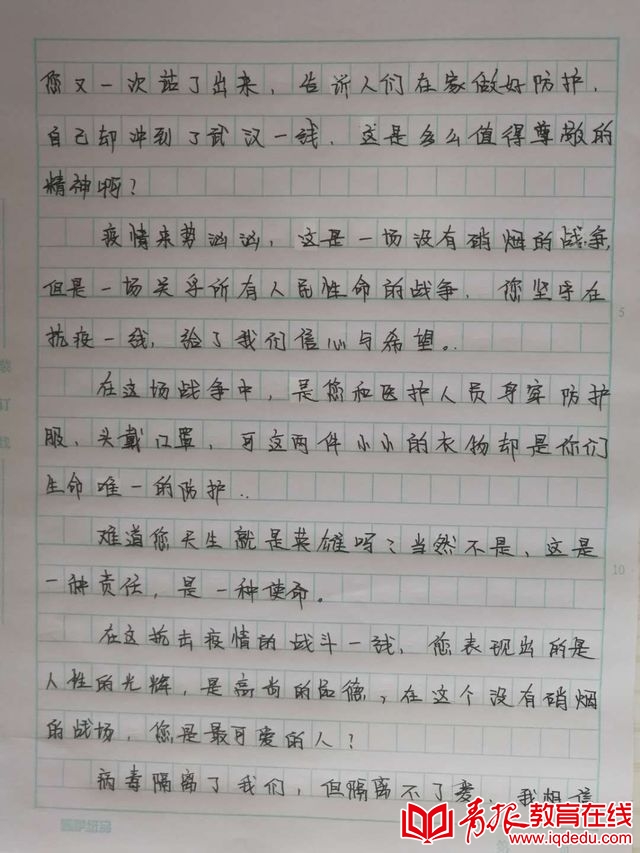 您又一次站了出来，告诉人们在家做好防护，
自己却冲到了武汉一线，这是多么值得尊敬的
精神啊？
疫情来势汹汹，这是一场没有硝烟的战争，
但是一场关乎所有人民性命的战争，您坚守在
抗疫一线，给了我们信心与希望。
在这场战争中，是您和医护人员身穿防护
服，头戴口罩，可这两件小小的衣物却是你们
生命唯一的防护..
难道您天生就是英雄吗？当然不是，这是
一种责任，是一种使命。
在这抗击疫情的战斗一线，您表现出的是
人性的光辉，是高尚的品德，在这个没有硝烟
的战场，您是最可爱的人？
病毒隔离了我们，但隔离不了爱，我相信
5
10
装
订
线
青报教育在线
www.iqdedu.com